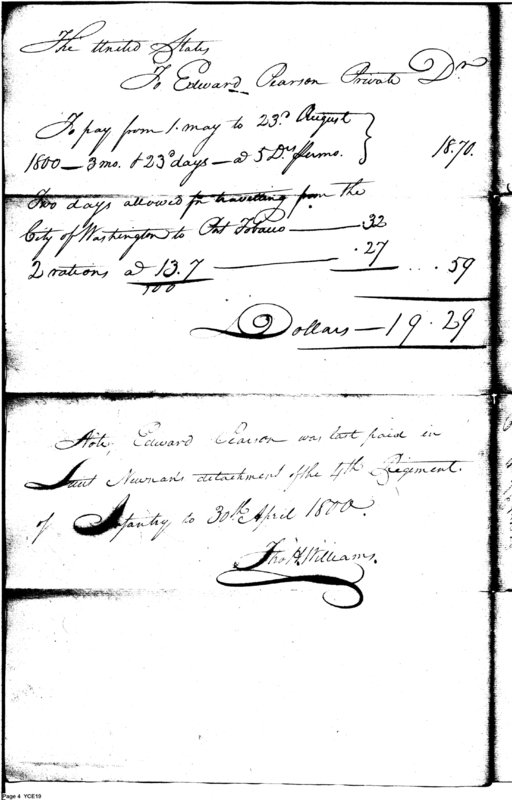 The United States
To Edward Pearson Private Dr
To pay from 1. may to 23d August
1800 — 3 mo. & 23 days — at 5 Drs pr mo. 18.70.
Two days allowed for travelling from the
City of Washington to Port Tobacco — .32
2 rations at 13.7/100 — .27 ... 59
Dollars — 19.29
Note, Edward Pearson was last paid in
Lieut Newman's detachment of the 4th Regiment.
of Infantry to 30th April 1800.
Thos H. Williams.
Page 4 YCE19